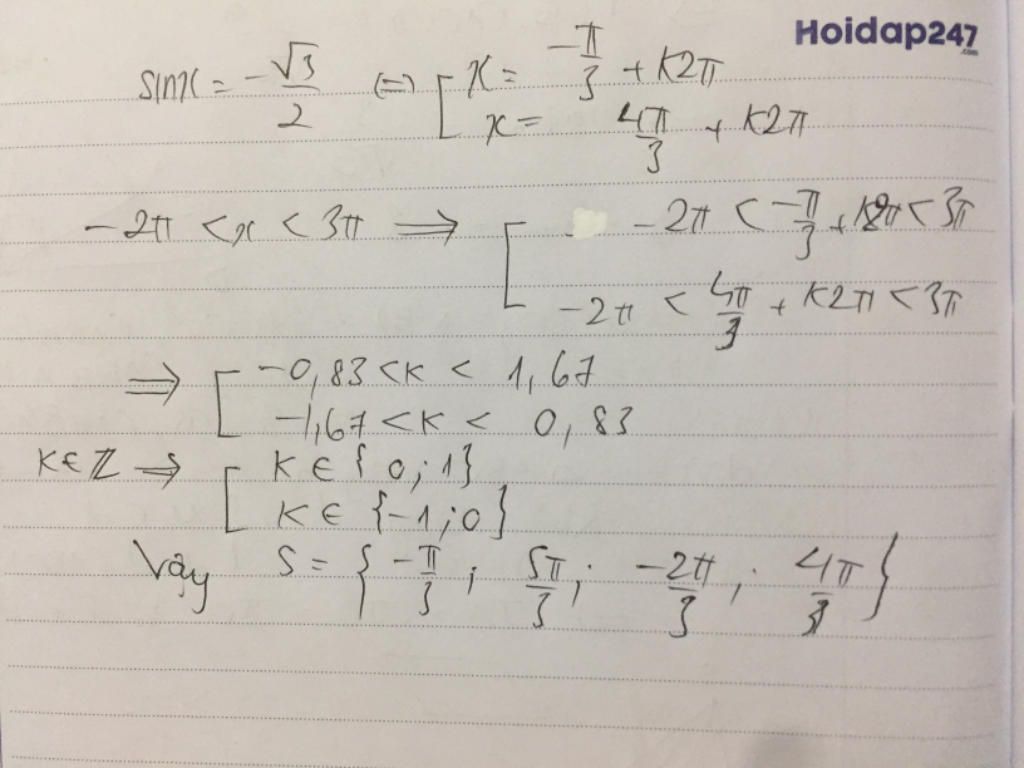 Hoidap247
.com
sinx = -√3/2 ⇔ [ x = -π/3 + K2π
x = 4π/3 + K2π
-2π < x < 3π ⇒ [ -2π < -π/3 + K2π < 3π
-2π < 4π/3 + K2π < 3π
⇒ [ -0,83 < K < 1,67
-1,67 < K < 0,83
K ∈ Z ⇒ [ K ∈ {0; 1}
K ∈ {-1; 0}
Vậy S = { -π/3 ; 5π/3 ; -2π/3 ; 4π/3 }